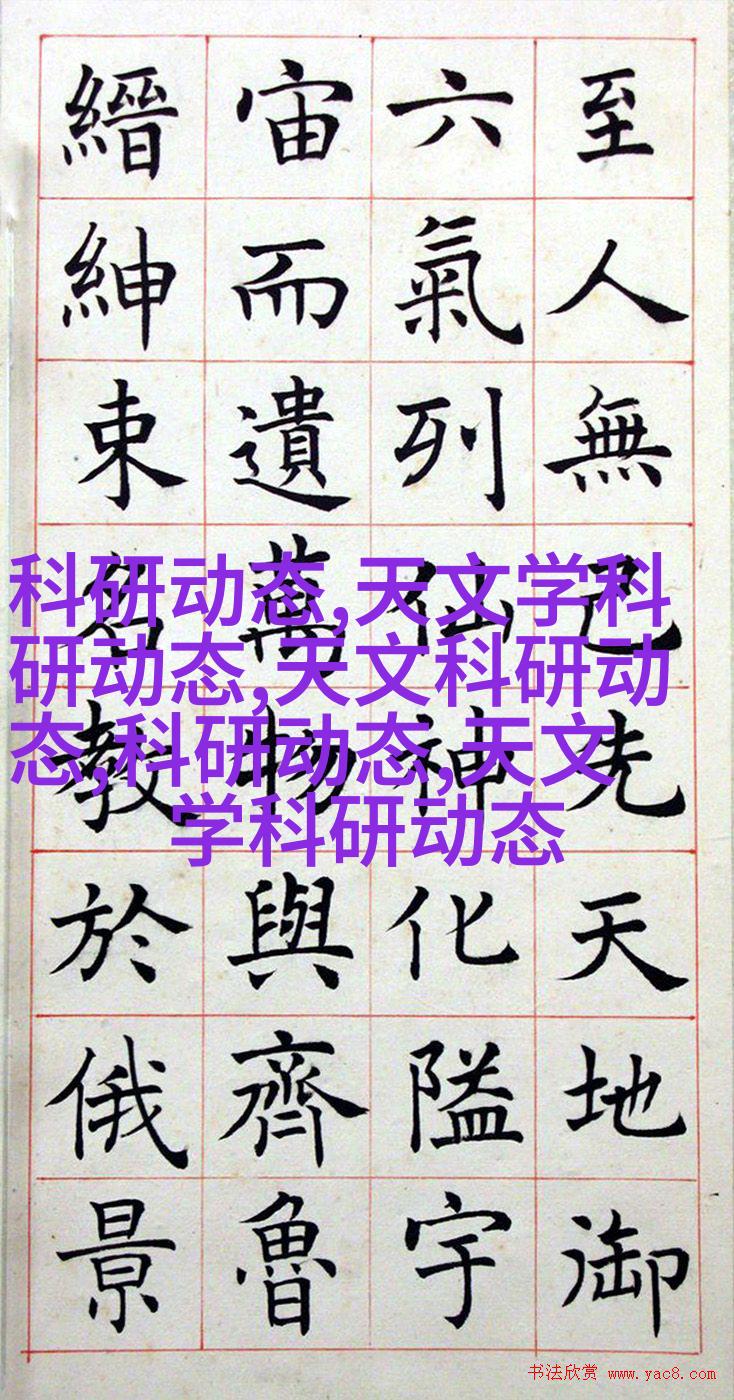 至人無己先天地御
六氣列仙神化隘宇
宙而遺萬物與齊魯
縉紳束名教於俄景
科研动态,天文学科
研动态,天文科研动
态,科研动态,天文
学科研动态
书法欣赏 www.yac8.com